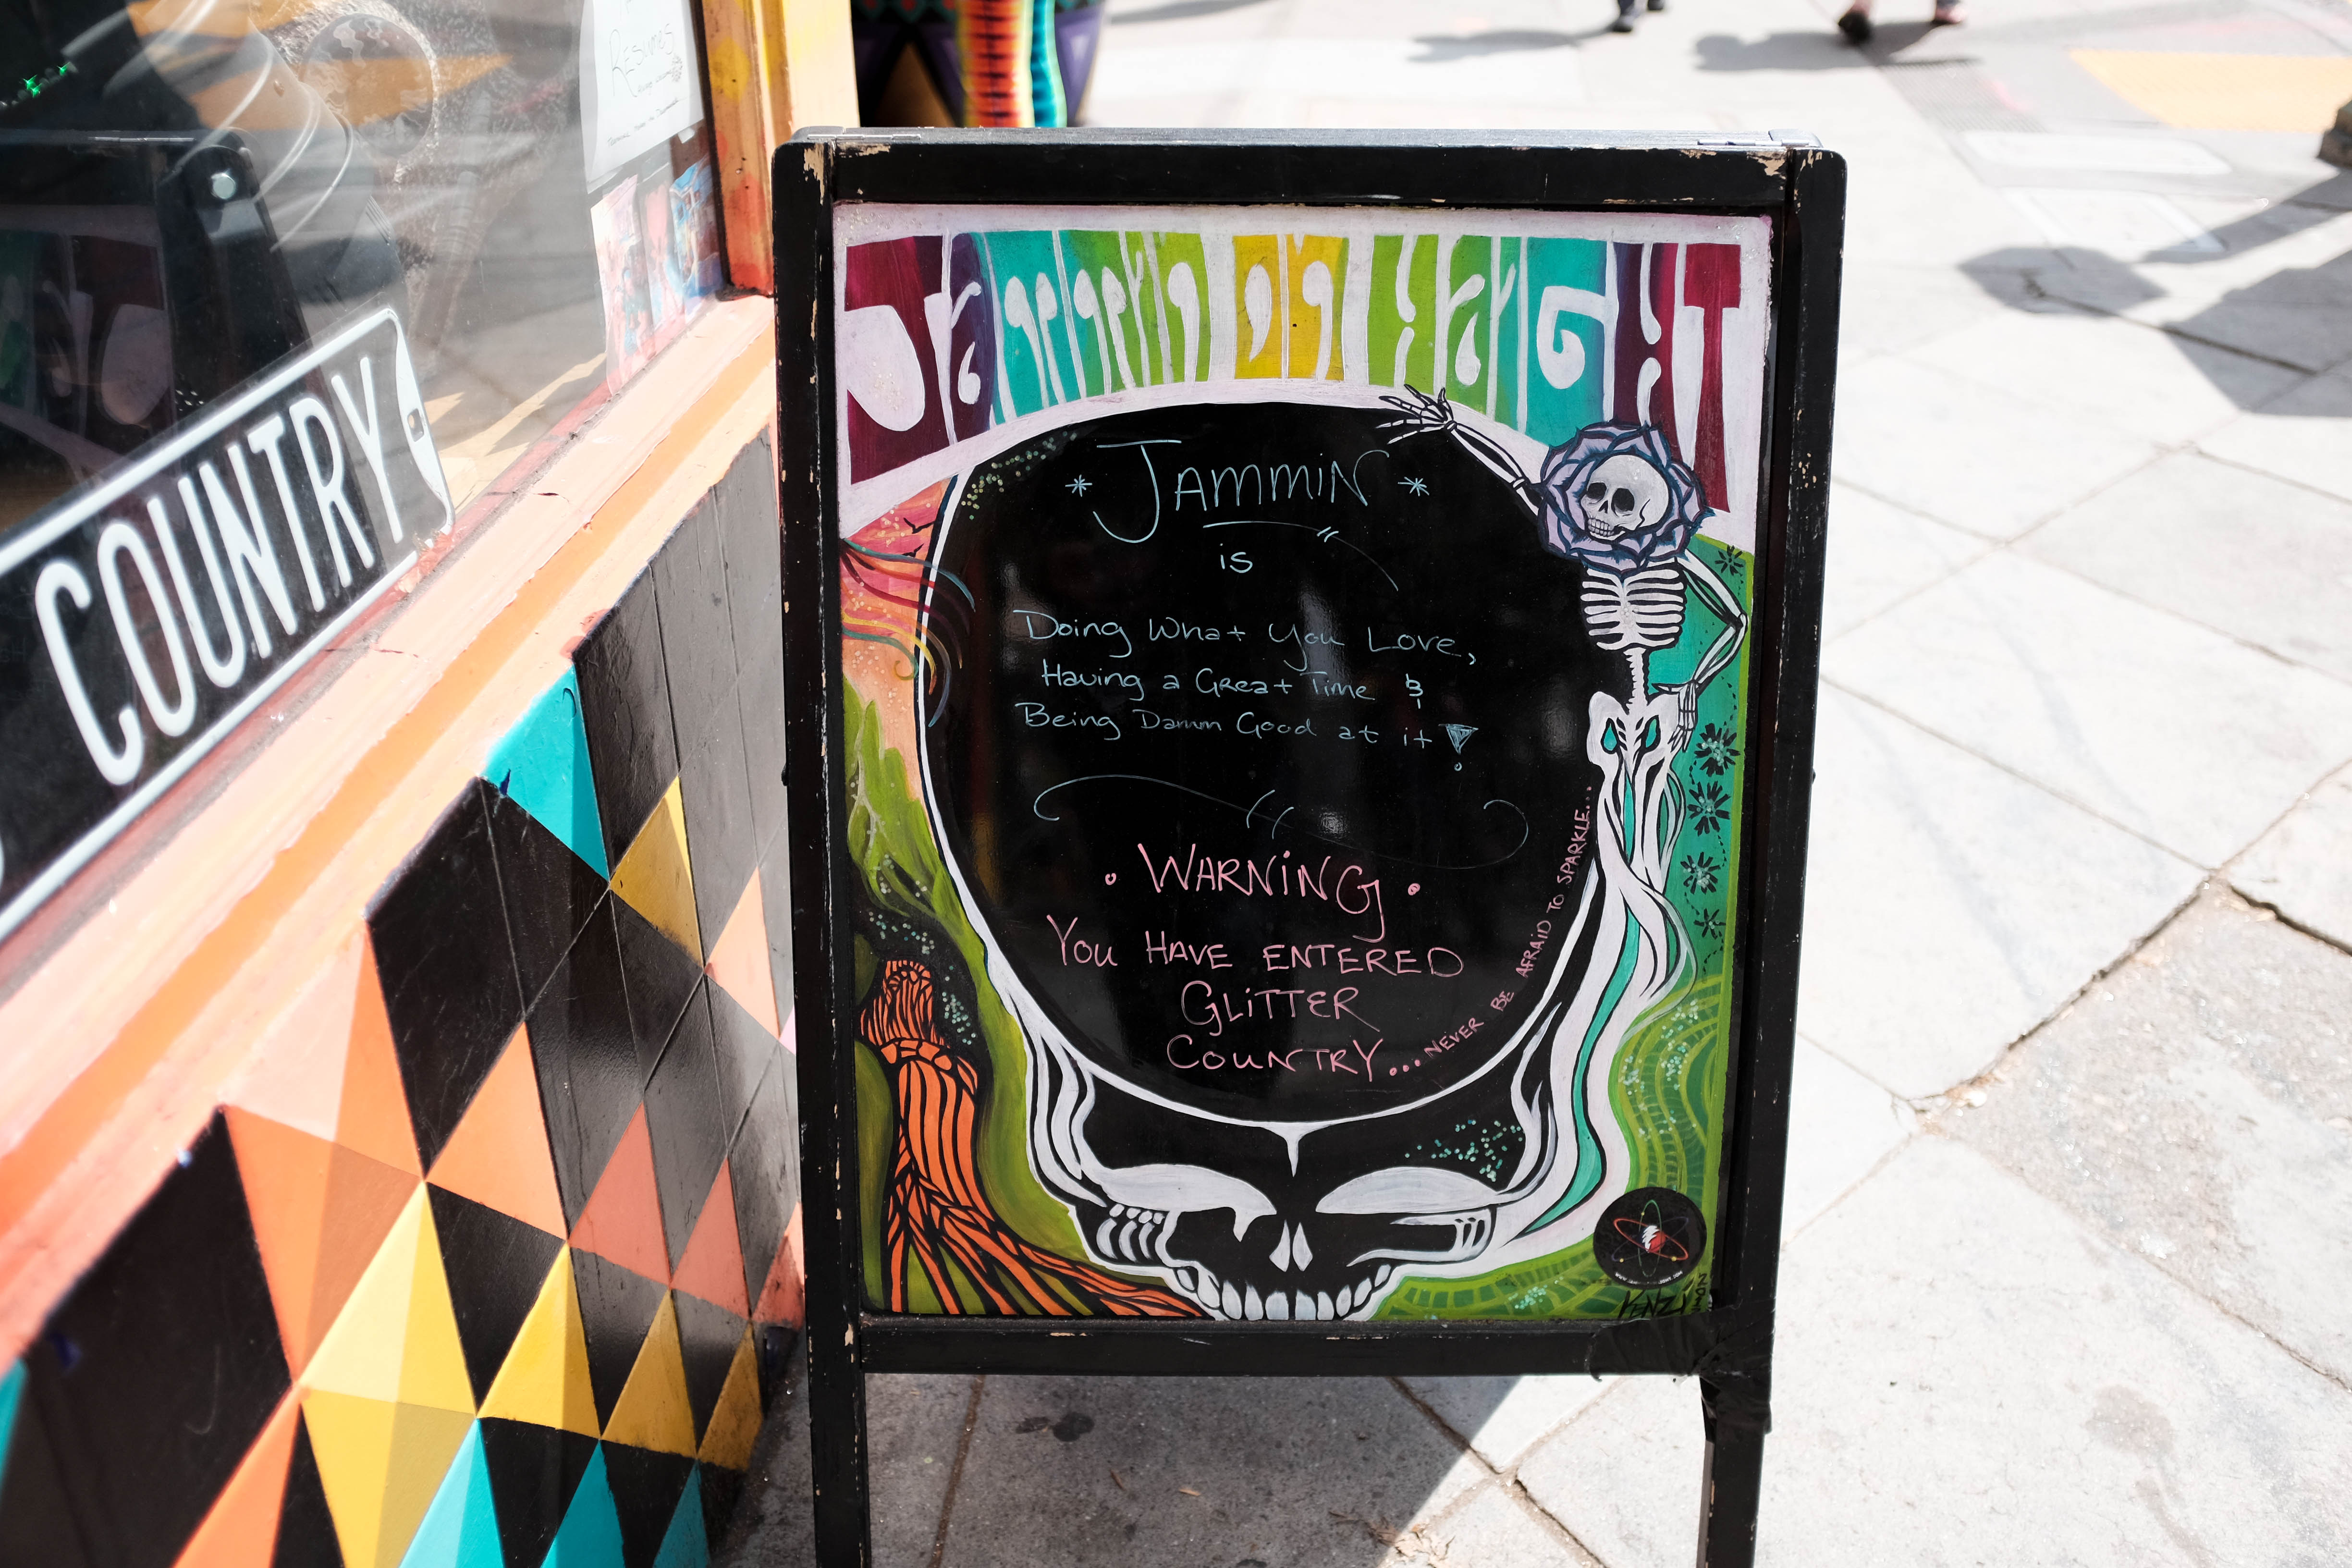 RÉSUMÉS
COUNTRY
JAMMIN ON HAIGHT
* JAMMIN *
is
Doing What You Love,
Having a Great Time &
Being Damn Good at it!
• WARNING •
You HAVE ENTERED
GLITTER
COUNTRY...NEVER BE AFRAID TO SPARKLE...
KENZI